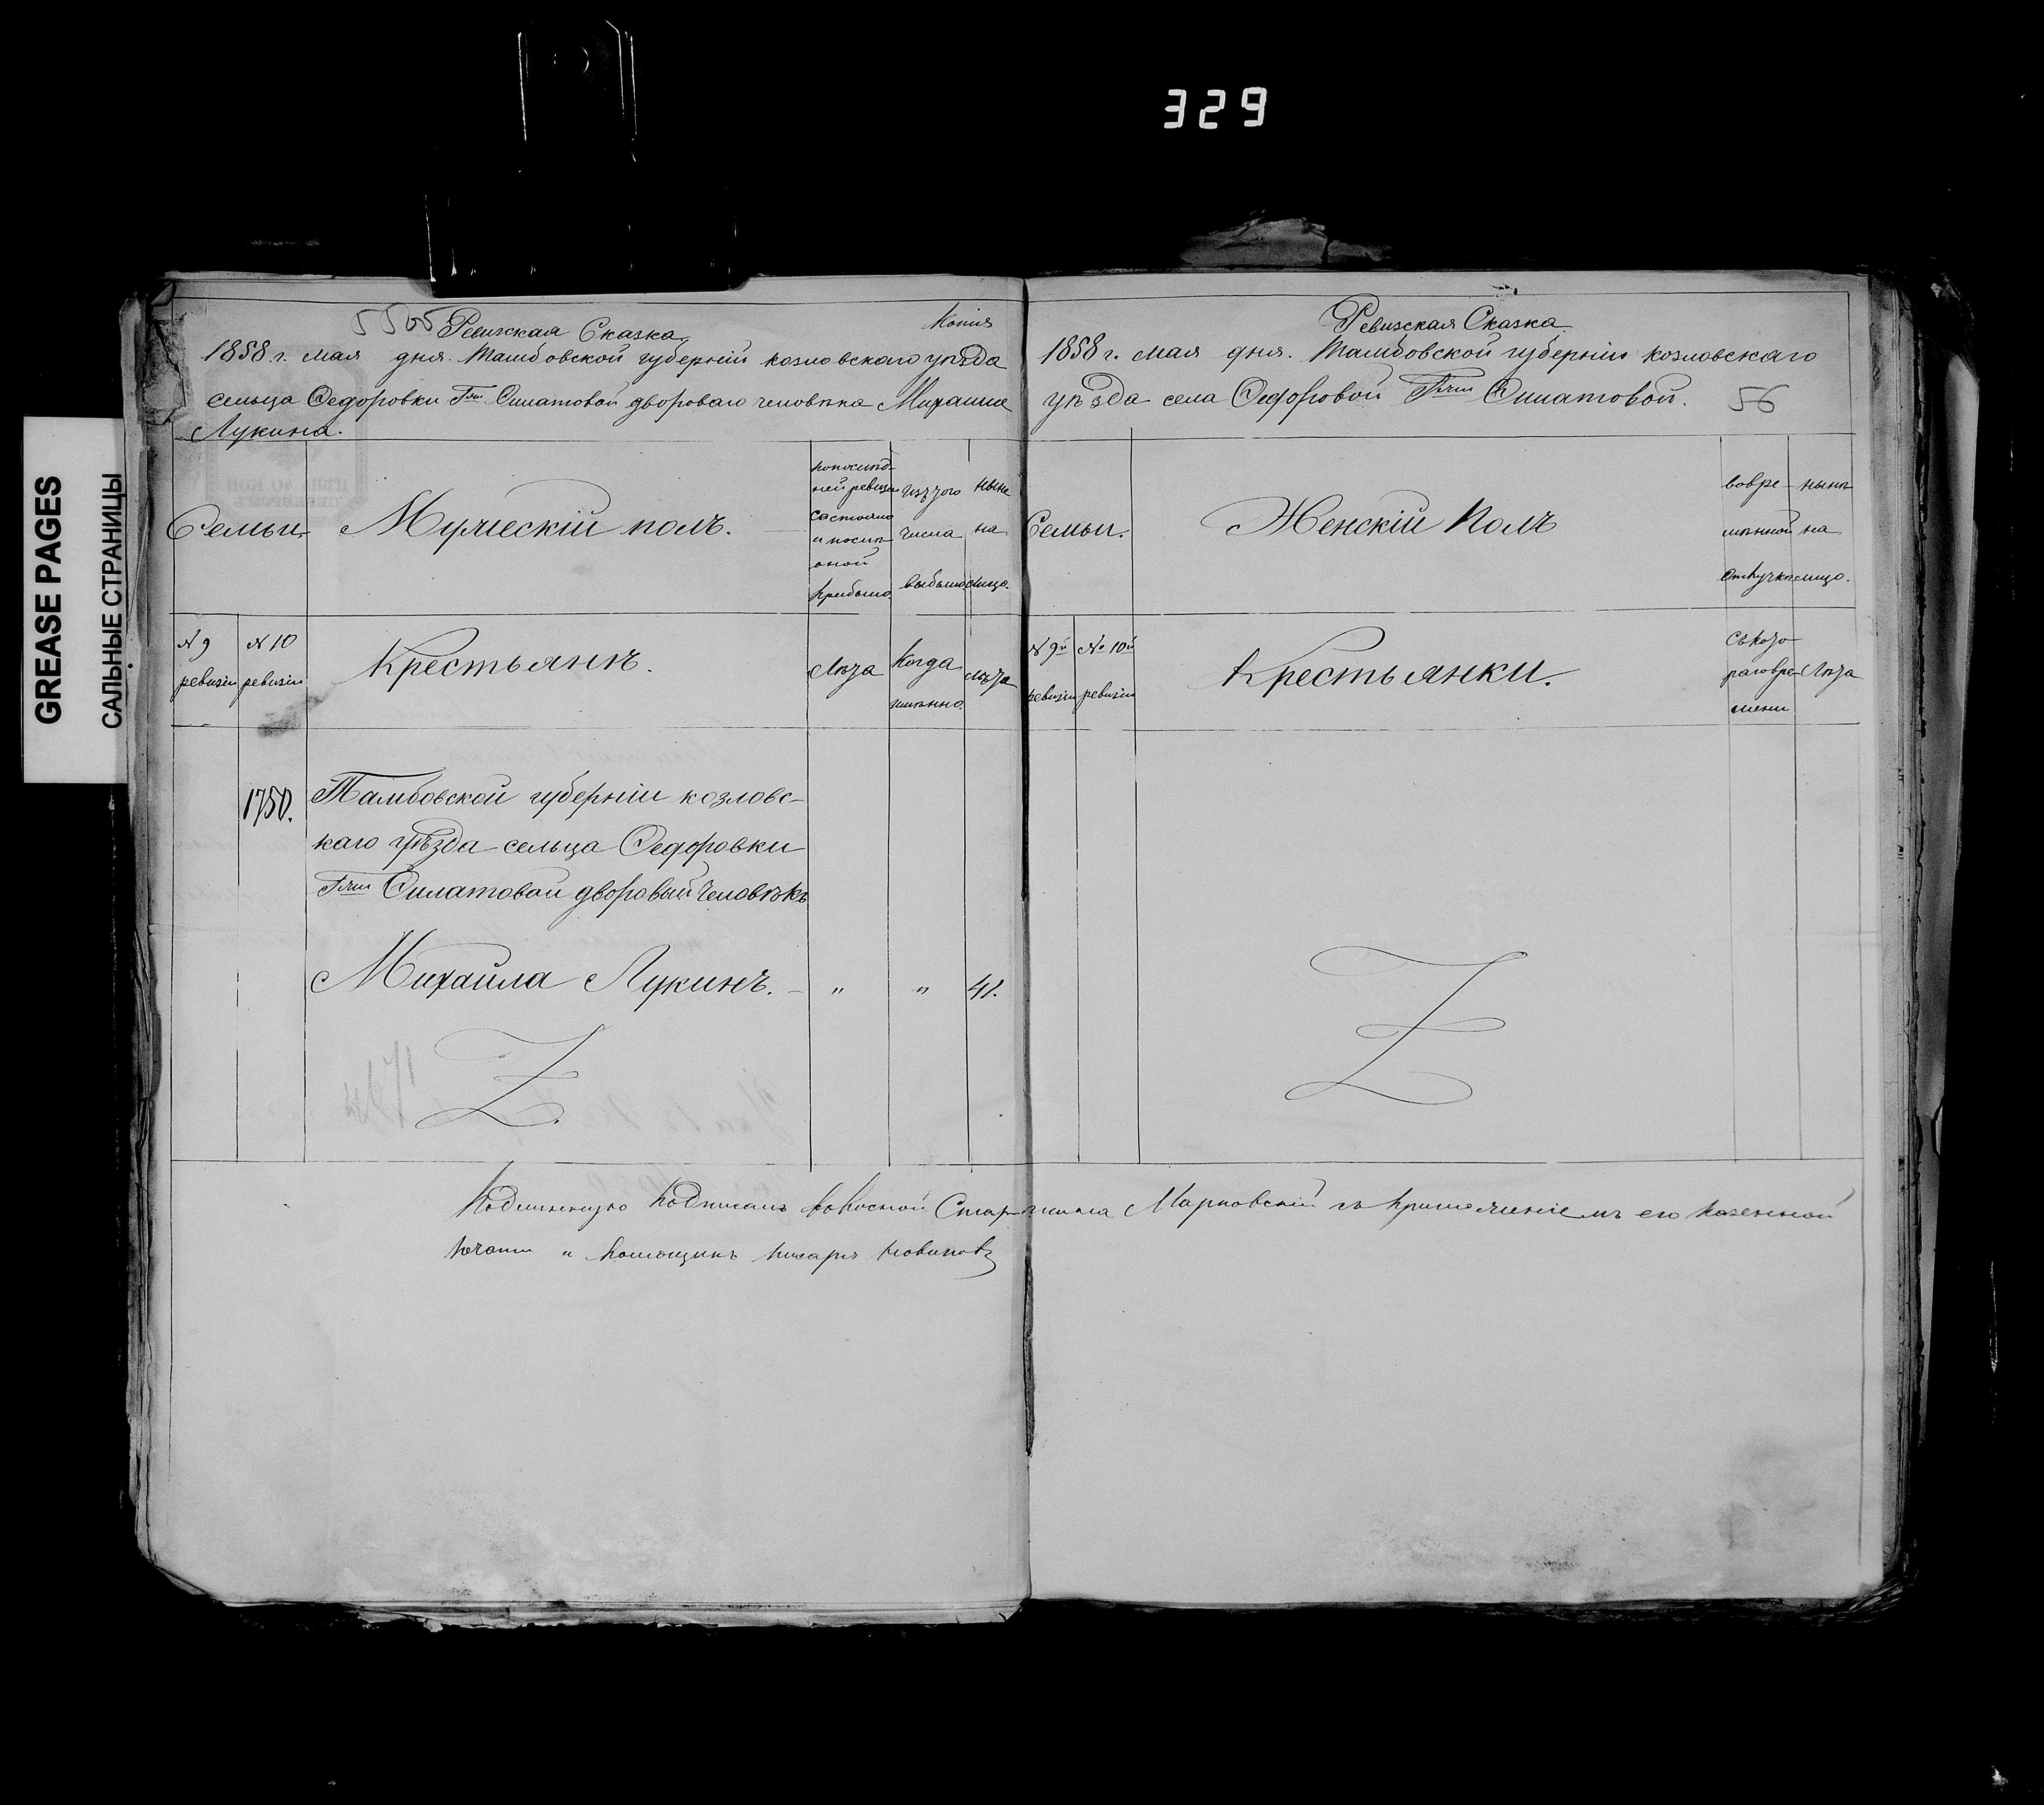 329
GREASE PAGES
САЛЬНЫЕ СТРАНИЦЫ
5505 Ревизская Сказка. Копія
1858 г. мая дня. Тамбовской губерніи козловскаго уѣзда
сельца Ѳедоровки Г-жи Филатовой двороваго человѣка Михаила
Лукина.
Семьи.
Мужескій полъ.
попослѣд-
ней ревизіи
состояло
и послѣ
оной
прибыло.
изъ того
числа
выбыло
нынѣ
на
лицо.
N 9
ревизіи
N 10
ревизіи
Крестьянъ.
Лѣта
Когда
имянно.
Лѣта
1750.
Тамбовской губерніи козловс-
каго уѣзда сельца Ѳедоровки
Г-жи Филатовой дворовый человѣкъ
Михайла Лукинъ. — " " 41.
Ревизская Сказка.
1858 г. мая дня. Тамбовской губерніи козловскаго
уѣзда села Ѳедоровой Г-жи Филатовой. 56
Семьи.
Женскій Полъ
вовре-
мѣнной
отлучке
нынѣ
на
лицо.
N 9й
ревизіи
№ 10й
ревизіи
Крестьянки.
Съкого
раговре-
мени
Лѣта
Подлинную подписалъ Волосной Старшина Марковскій съ приложеніемъ его казенной
печати и помощникъ писаря Новиковъ